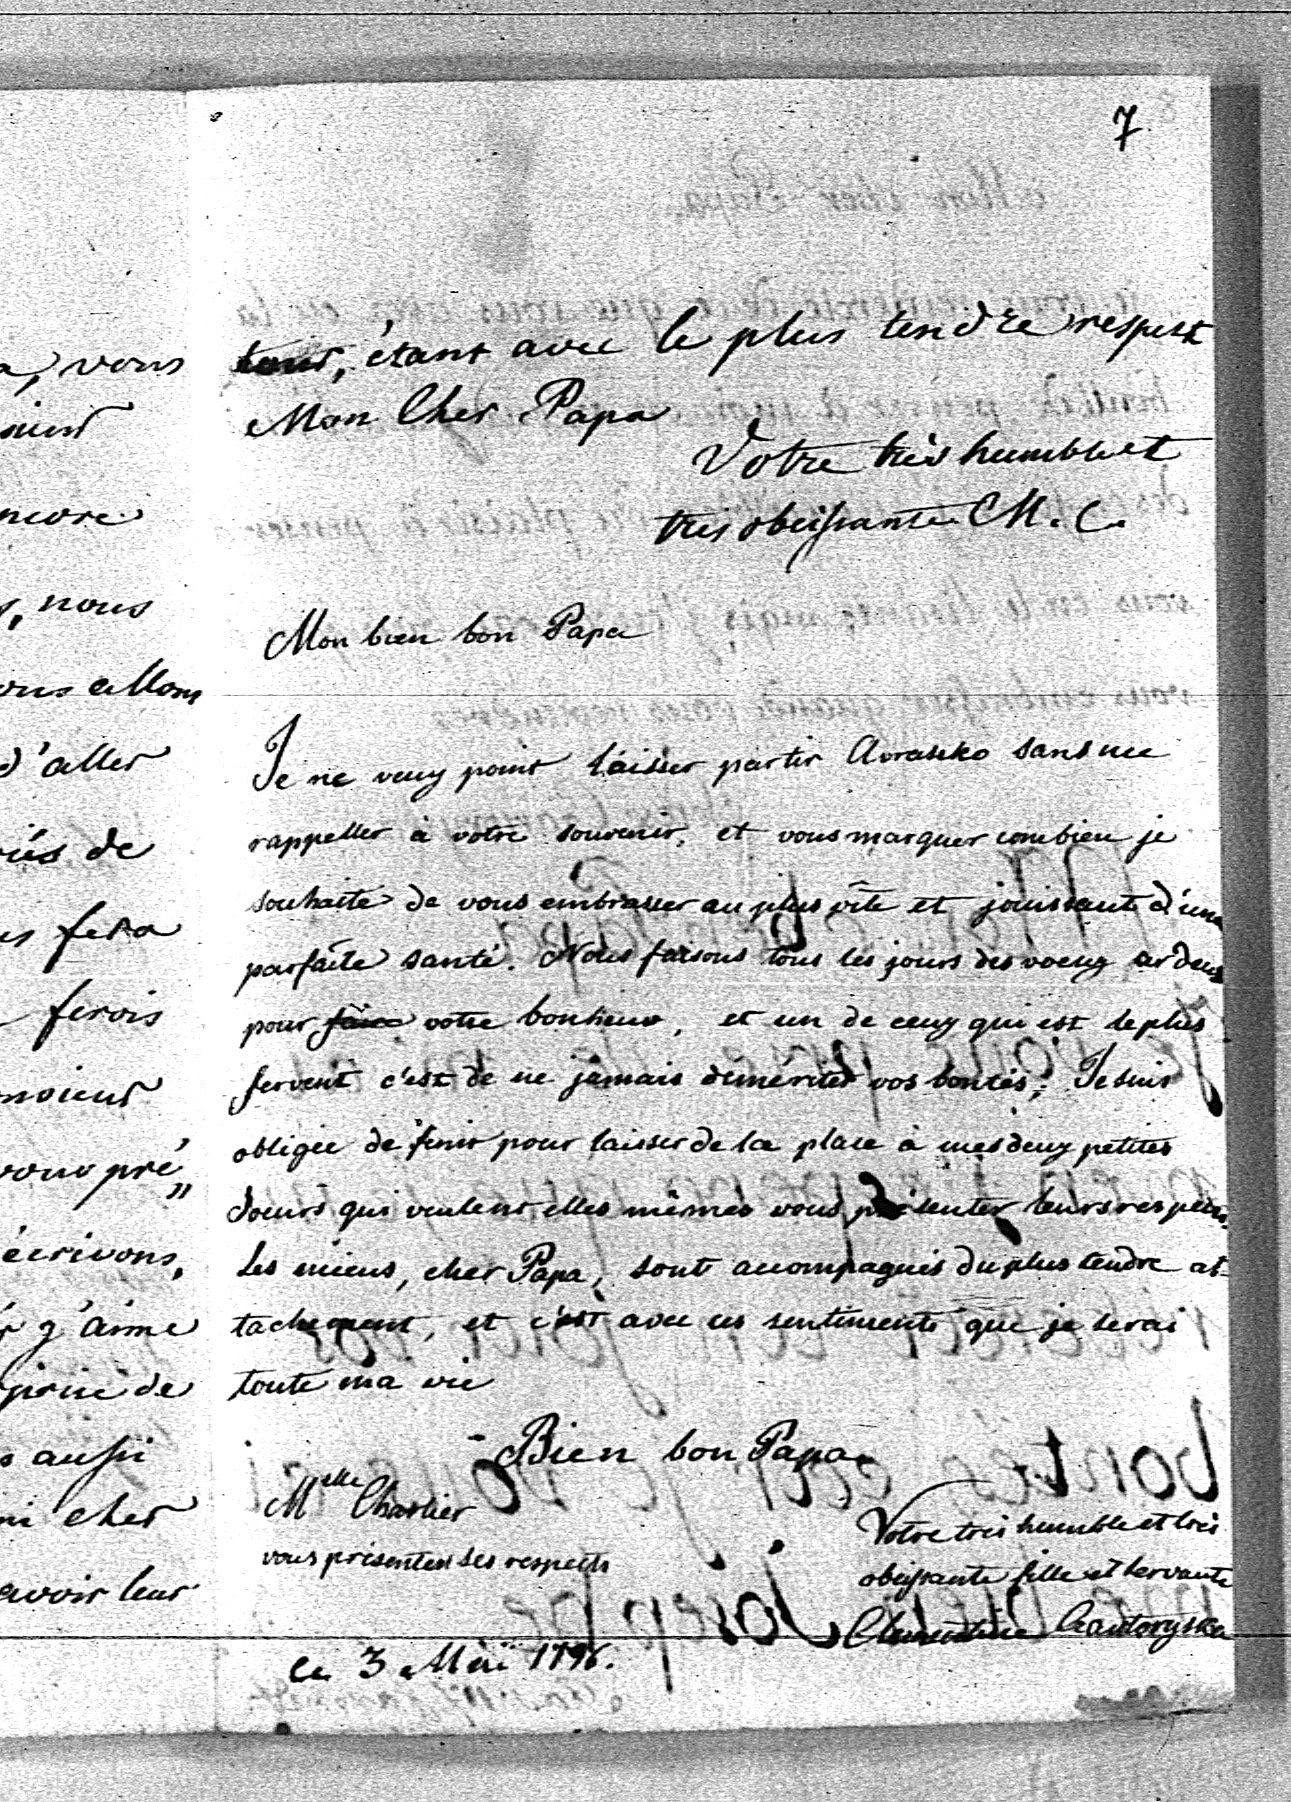 7
a, vous
ncore
s, nous
ous allons
d'aller
riés de
es fera
ferois
vous pré„
écrivons,
j'aime
prie de
aussi
cher
avoir leur
tour, étant avec le plus tendre respect
Mon Cher Papa
Votre très humble et
très obeissante M. C.
Mon bien bon Papa
Je ne veuy point laisser partir Avrasko sans me
rappeller à votre souvenir, et vous marquer combien je
souhaite de vous embrasser au plus vîte et jouissant d'une
parfaite santé. Nous faisons tous les jours des voeuy ardens
pour faire votre bonheur, et un de ceuy qui est le plus
fervent c'est de ne jamais démériter vos bontés; Je suis
obligée de finir pour laisser de la place à mes deuy petites
Soeurs qui veulent elles mêmes vous présenter leurs respects.
Les miens, cher Papa, sont accompagnés du plus tendre at-
tachement, et c'est avec ces sentiments que je serai
toute ma vie
Bien bon Papa.
Mlle Charlier
vous présente ses respects
Votre très humble et très
obeissante fille et servante
Clementine Czartoryska
ce 3 Mai 1796.